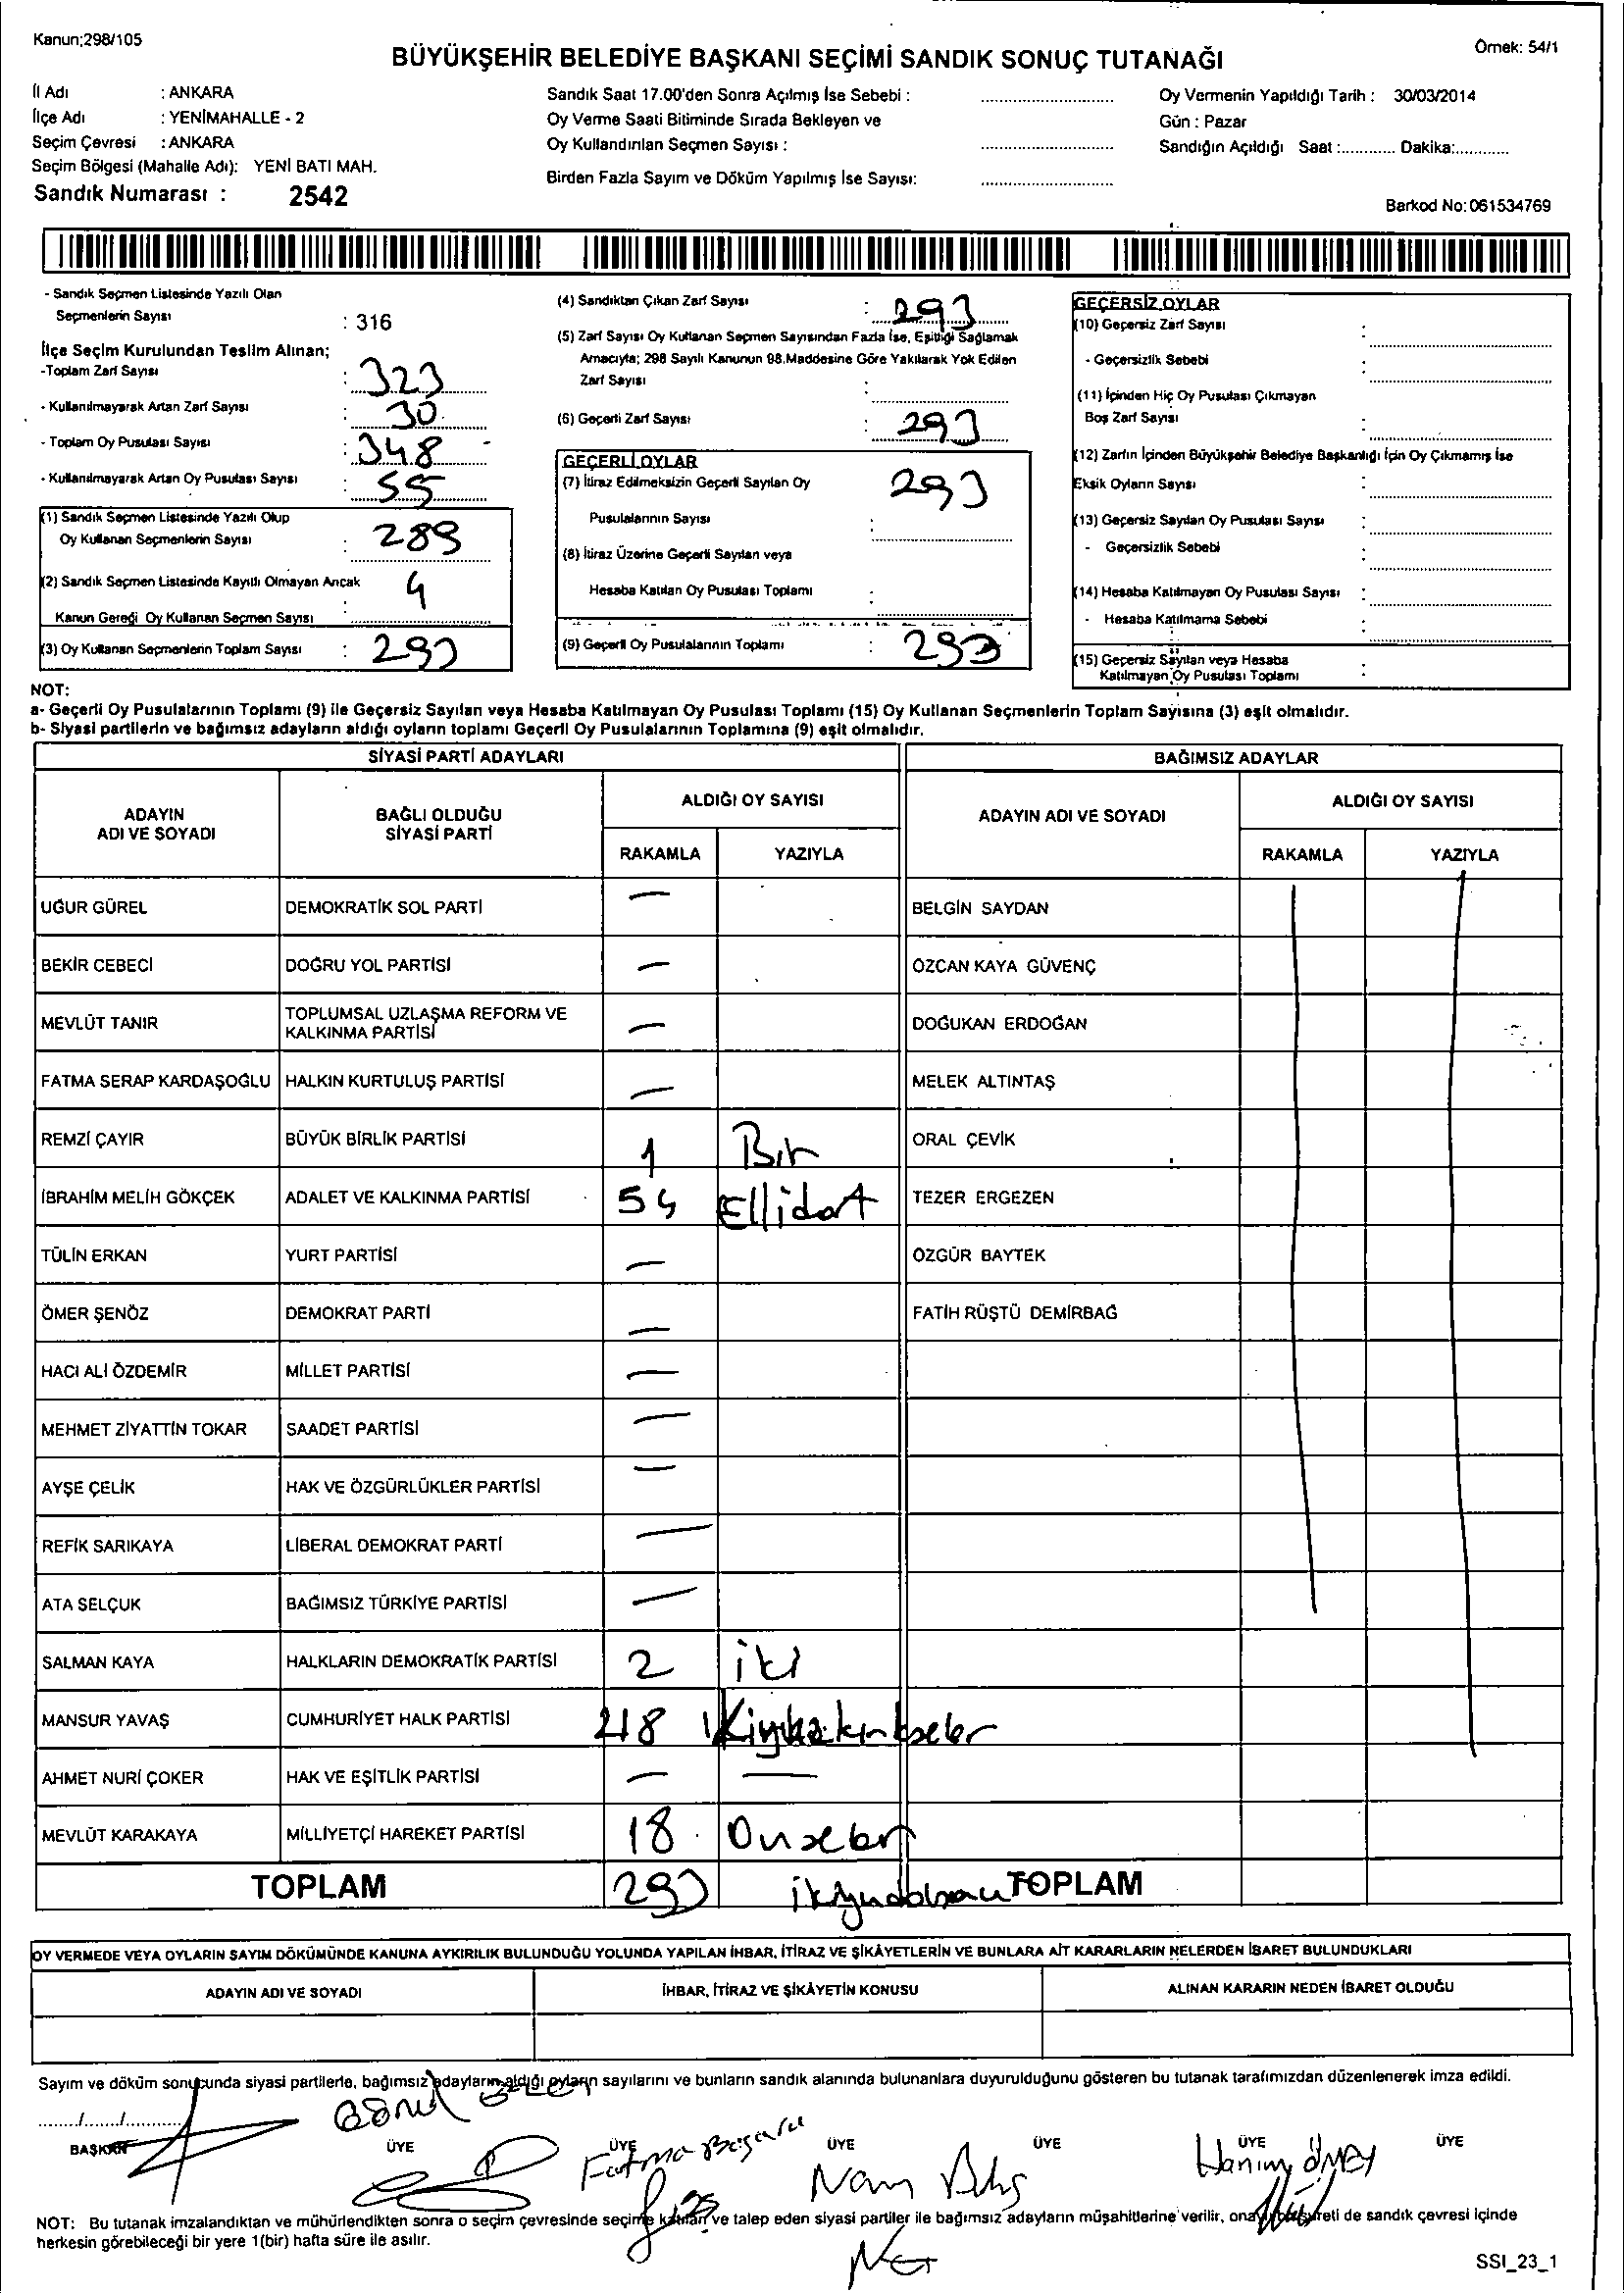 Kanun;298/105
Örnek: 54/1
BÜYÜKŞEHİR BELEDİYE BAŞKANI SEÇİMİ SANDIK SONUÇ TUTANAĞI
İl Adı : ANKARA
İlçe Adı : YENİMAHALLE - 2
Seçim Çevresi : ANKARA
Seçim Bölgesi (Mahalle Adı): YENİ BATI MAH.
Sandık Numarası : 2542
Sandık Saat 17.00'den Sonra Açılmış İse Sebebi :
Oy Verme Saati Bitiminde Sırada Bekleyen ve
Oy Kullandırılan Seçmen Sayısı :
Birden Fazla Sayım ve Döküm Yapılmış İse Sayısı:
Oy Vermenin Yapıldığı Tarih : 30/03/2014
Gün : Pazar
Sandığın Açıldığı Saat :............ Dakika:............
Barkod No: 061534769
- Sandık Seçmen Listesinde Yazılı Olan
Seçmenlerin Sayısı : 316
İlçe Seçim Kurulundan Teslim Alınan;
-Toplam Zarf Sayısı : 323
- Kullanılmayarak Artan Zarf Sayısı : 30
- Toplam Oy Pusulası Sayısı : 348
- Kullanılmayarak Artan Oy Pusulası Sayısı : 55
(1) Sandık Seçmen Listesinde Yazılı Olup
Oy Kullanan Seçmenlerin Sayısı : 289
(2) Sandık Seçmen Listesinde Kayıtlı Olmayan Ancak
Kanun Gereği Oy Kullanan Seçmen Sayısı : 4
(3) Oy Kullanan Seçmenlerin Toplam Sayısı : 293
(4) Sandıktan Çıkan Zarf Sayısı : 293
(5) Zarf Sayısı Oy Kullanan Seçmen Sayısından Fazla İse, Eşitliği Sağlamak
Amacıyla; 298 Sayılı Kanunun 98.Maddesine Göre Yakılarak Yok Edilen
Zarf Sayısı :
(6) Geçerli Zarf Sayısı : 293
GEÇERLİ OYLAR
(7) İtiraz Edilmeksizin Geçerli Sayılan Oy 293
Pusulalarının Sayısı :
(8) İtiraz Üzerine Geçerli Sayılan veya
Hesaba Katılan Oy Pusulası Toplamı :
(9) Geçerli Oy Pusulalarının Toplamı : 293
GEÇERSİZ OYLAR
(10) Geçersiz Zarf Sayısı :
- Geçersizlik Sebebi :
(11) İçinden Hiç Oy Pusulası Çıkmayan
Boş Zarf Sayısı :
(12) Zarfın İçinden Büyükşehir Belediye Başkanlığı İçin Oy Çıkmamış İse
Eksik Oyların Sayısı :
(13) Geçersiz Sayılan Oy Pusulası Sayısı :
- Geçersizlik Sebebi :
(14) Hesaba Katılmayan Oy Pusulası Sayısı :
- Hesaba Katılmama Sebebi :
(15) Geçersiz Sayılan veya Hesaba
Katılmayan Oy Pusulası Toplamı :
NOT:
a- Geçerli Oy Pusulalarının Toplamı (9) ile Geçersiz Sayılan veya Hesaba Katılmayan Oy Pusulası Toplamı (15) Oy Kullanan Seçmenlerin Toplam Sayısına (3) eşit olmalıdır.
b- Siyasi partilerin ve bağımsız adayların aldığı oyların toplamı Geçerli Oy Pusulalarının Toplamına (9) eşit olmalıdır.
SİYASİ PARTİ ADAYLARI BAĞIMSIZ ADAYLAR
ADAYIN ADI VE SOYADI BAĞLI OLDUĞU SİYASİ PARTİ ALDIĞI OY SAYISI ADAYIN ADI VE SOYADI ALDIĞI OY SAYISI
RAKAMLA YAZIYLA RAKAMLA YAZIYLA
UĞUR GÜREL DEMOKRATİK SOL PARTİ — BELGİN SAYDAN
BEKİR CEBECİ DOĞRU YOL PARTİSİ — ÖZCAN KAYA GÜVENÇ
MEVLÜT TANIR TOPLUMSAL UZLAŞMA REFORM VE KALKINMA PARTİSİ — DOĞUKAN ERDOĞAN
FATMA SERAP KARDAŞOĞLU HALKIN KURTULUŞ PARTİSİ — MELEK ALTINTAŞ
REMZİ ÇAYIR BÜYÜK BİRLİK PARTİSİ 1 Bir ORAL ÇEVİK
İBRAHİM MELİH GÖKÇEK ADALET VE KALKINMA PARTİSİ 54 Ellidört TEZER ERGEZEN
TÜLİN ERKAN YURT PARTİSİ — ÖZGÜR BAYTEK
ÖMER ŞENÖZ DEMOKRAT PARTİ — FATİH RÜŞTÜ DEMİRBAĞ
HACI ALİ ÖZDEMİR MİLLET PARTİSİ —
MEHMET ZİYATTİN TOKAR SAADET PARTİSİ —
AYŞE ÇELİK HAK VE ÖZGÜRLÜKLER PARTİSİ —
REFİK SARIKAYA LİBERAL DEMOKRAT PARTİ —
ATA SELÇUK BAĞIMSIZ TÜRKİYE PARTİSİ —
SALMAN KAYA HALKLARIN DEMOKRATİK PARTİSİ 2 iki
MANSUR YAVAŞ CUMHURİYET HALK PARTİSİ 218
AHMET NURİ ÇOKER HAK VE EŞİTLİK PARTİSİ — —
MEVLÜT KARAKAYA MİLLİYETÇİ HAREKET PARTİSİ 18 Onsekiz
TOPLAM 293 TOPLAM
OY VERMEDE VEYA OYLARIN SAYIM DÖKÜMÜNDE KANUNA AYKIRILIK BULUNDUĞU YOLUNDA YAPILAN İHBAR, İTİRAZ VE ŞİKÂYETLERİN VE BUNLARA AİT KARARLARIN NELERDEN İBARET BULUNDUKLARI
ADAYIN ADI VE SOYADI İHBAR, İTİRAZ VE ŞİKÂYETİN KONUSU ALINAN KARARIN NEDEN İBARET OLDUĞU
Sayım ve döküm sonucunda siyasi partilerle, bağımsız adayların aldığı oyların sayılarını ve bunların sandık alanında bulunanlara duyurulduğunu gösteren bu tutanak tarafımızdan düzenlenerek imza edildi.
......./......./..............
BAŞKAN ÜYE ÜYE ÜYE ÜYE ÜYE ÜYE
Fatma Başaran
Hanım
NOT: Bu tutanak imzalandıktan ve mühürlendikten sonra o seçim çevresinde seçime katılan ve talep eden siyasi partiler ile bağımsız adayların müşahitlerine verilir, onaylı bir sureti de sandık çevresi içinde
herkesin görebileceği bir yere 1(bir) hafta süre ile asılır.
SSI_23_1